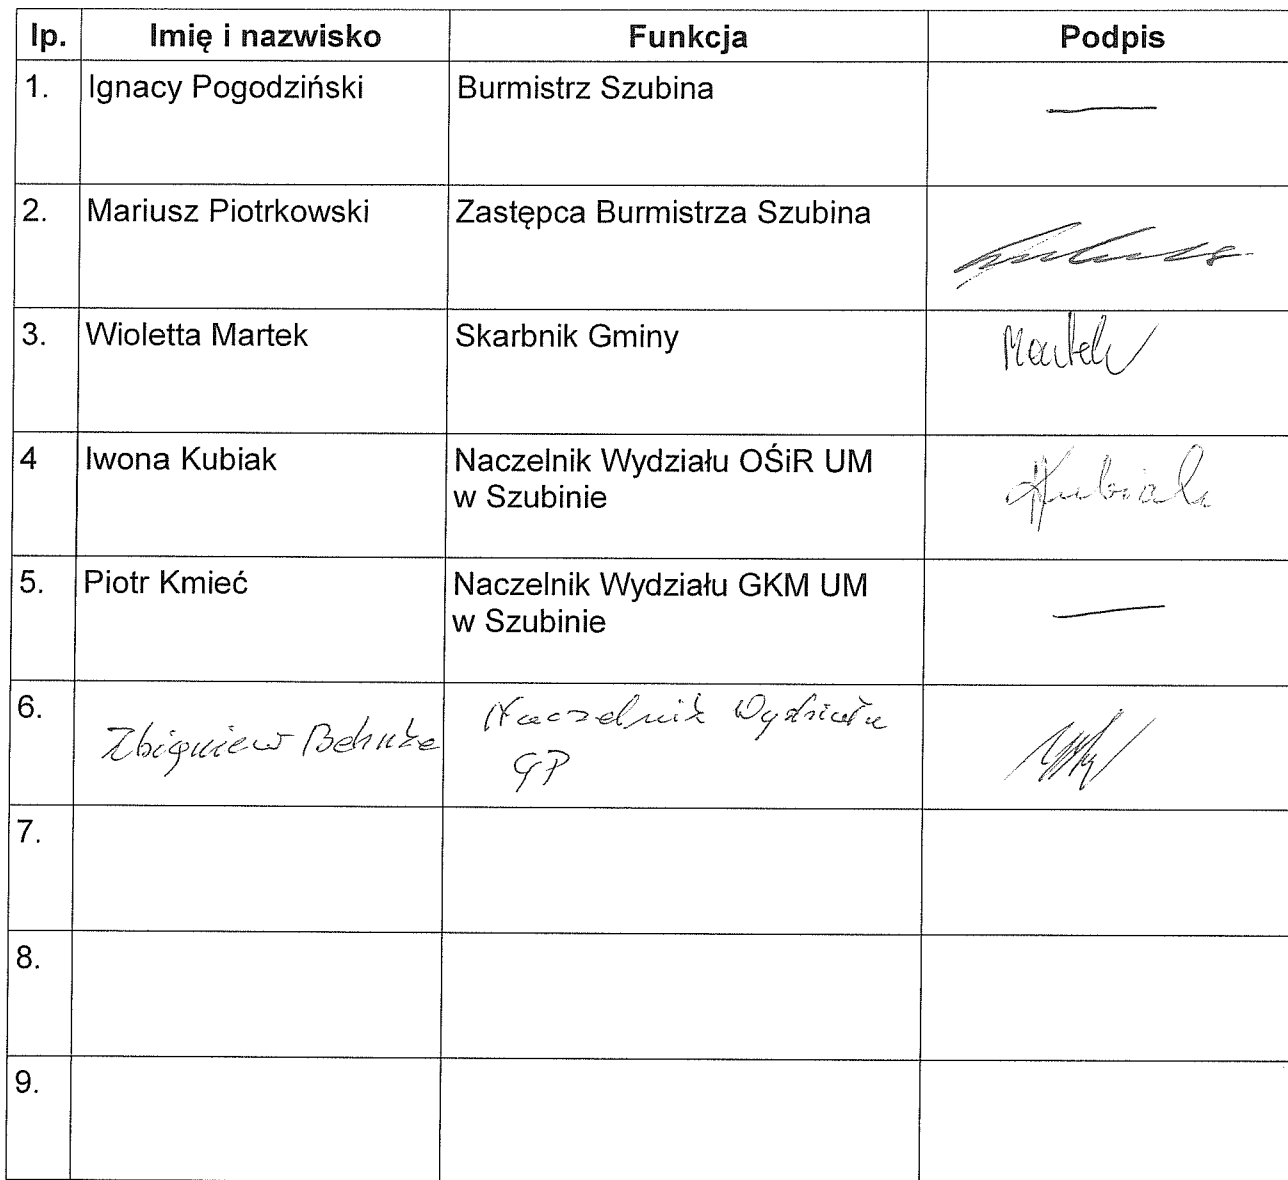 lp. Imię i nazwisko Funkcja Podpis
1. Ignacy Pogodziński Burmistrz Szubina
2. Mariusz Piotrkowski Zastępca Burmistrza Szubina
3. Wioletta Martek Skarbnik Gminy Martek
4 Iwona Kubiak Naczelnik Wydziału OŚiR UM
w Szubinie
Kubiak
5. Piotr Kmieć Naczelnik Wydziału GKM UM
w Szubinie
6. Zbigniew Behnke Naczelnik Wydziału
GP
7.
8.
9.